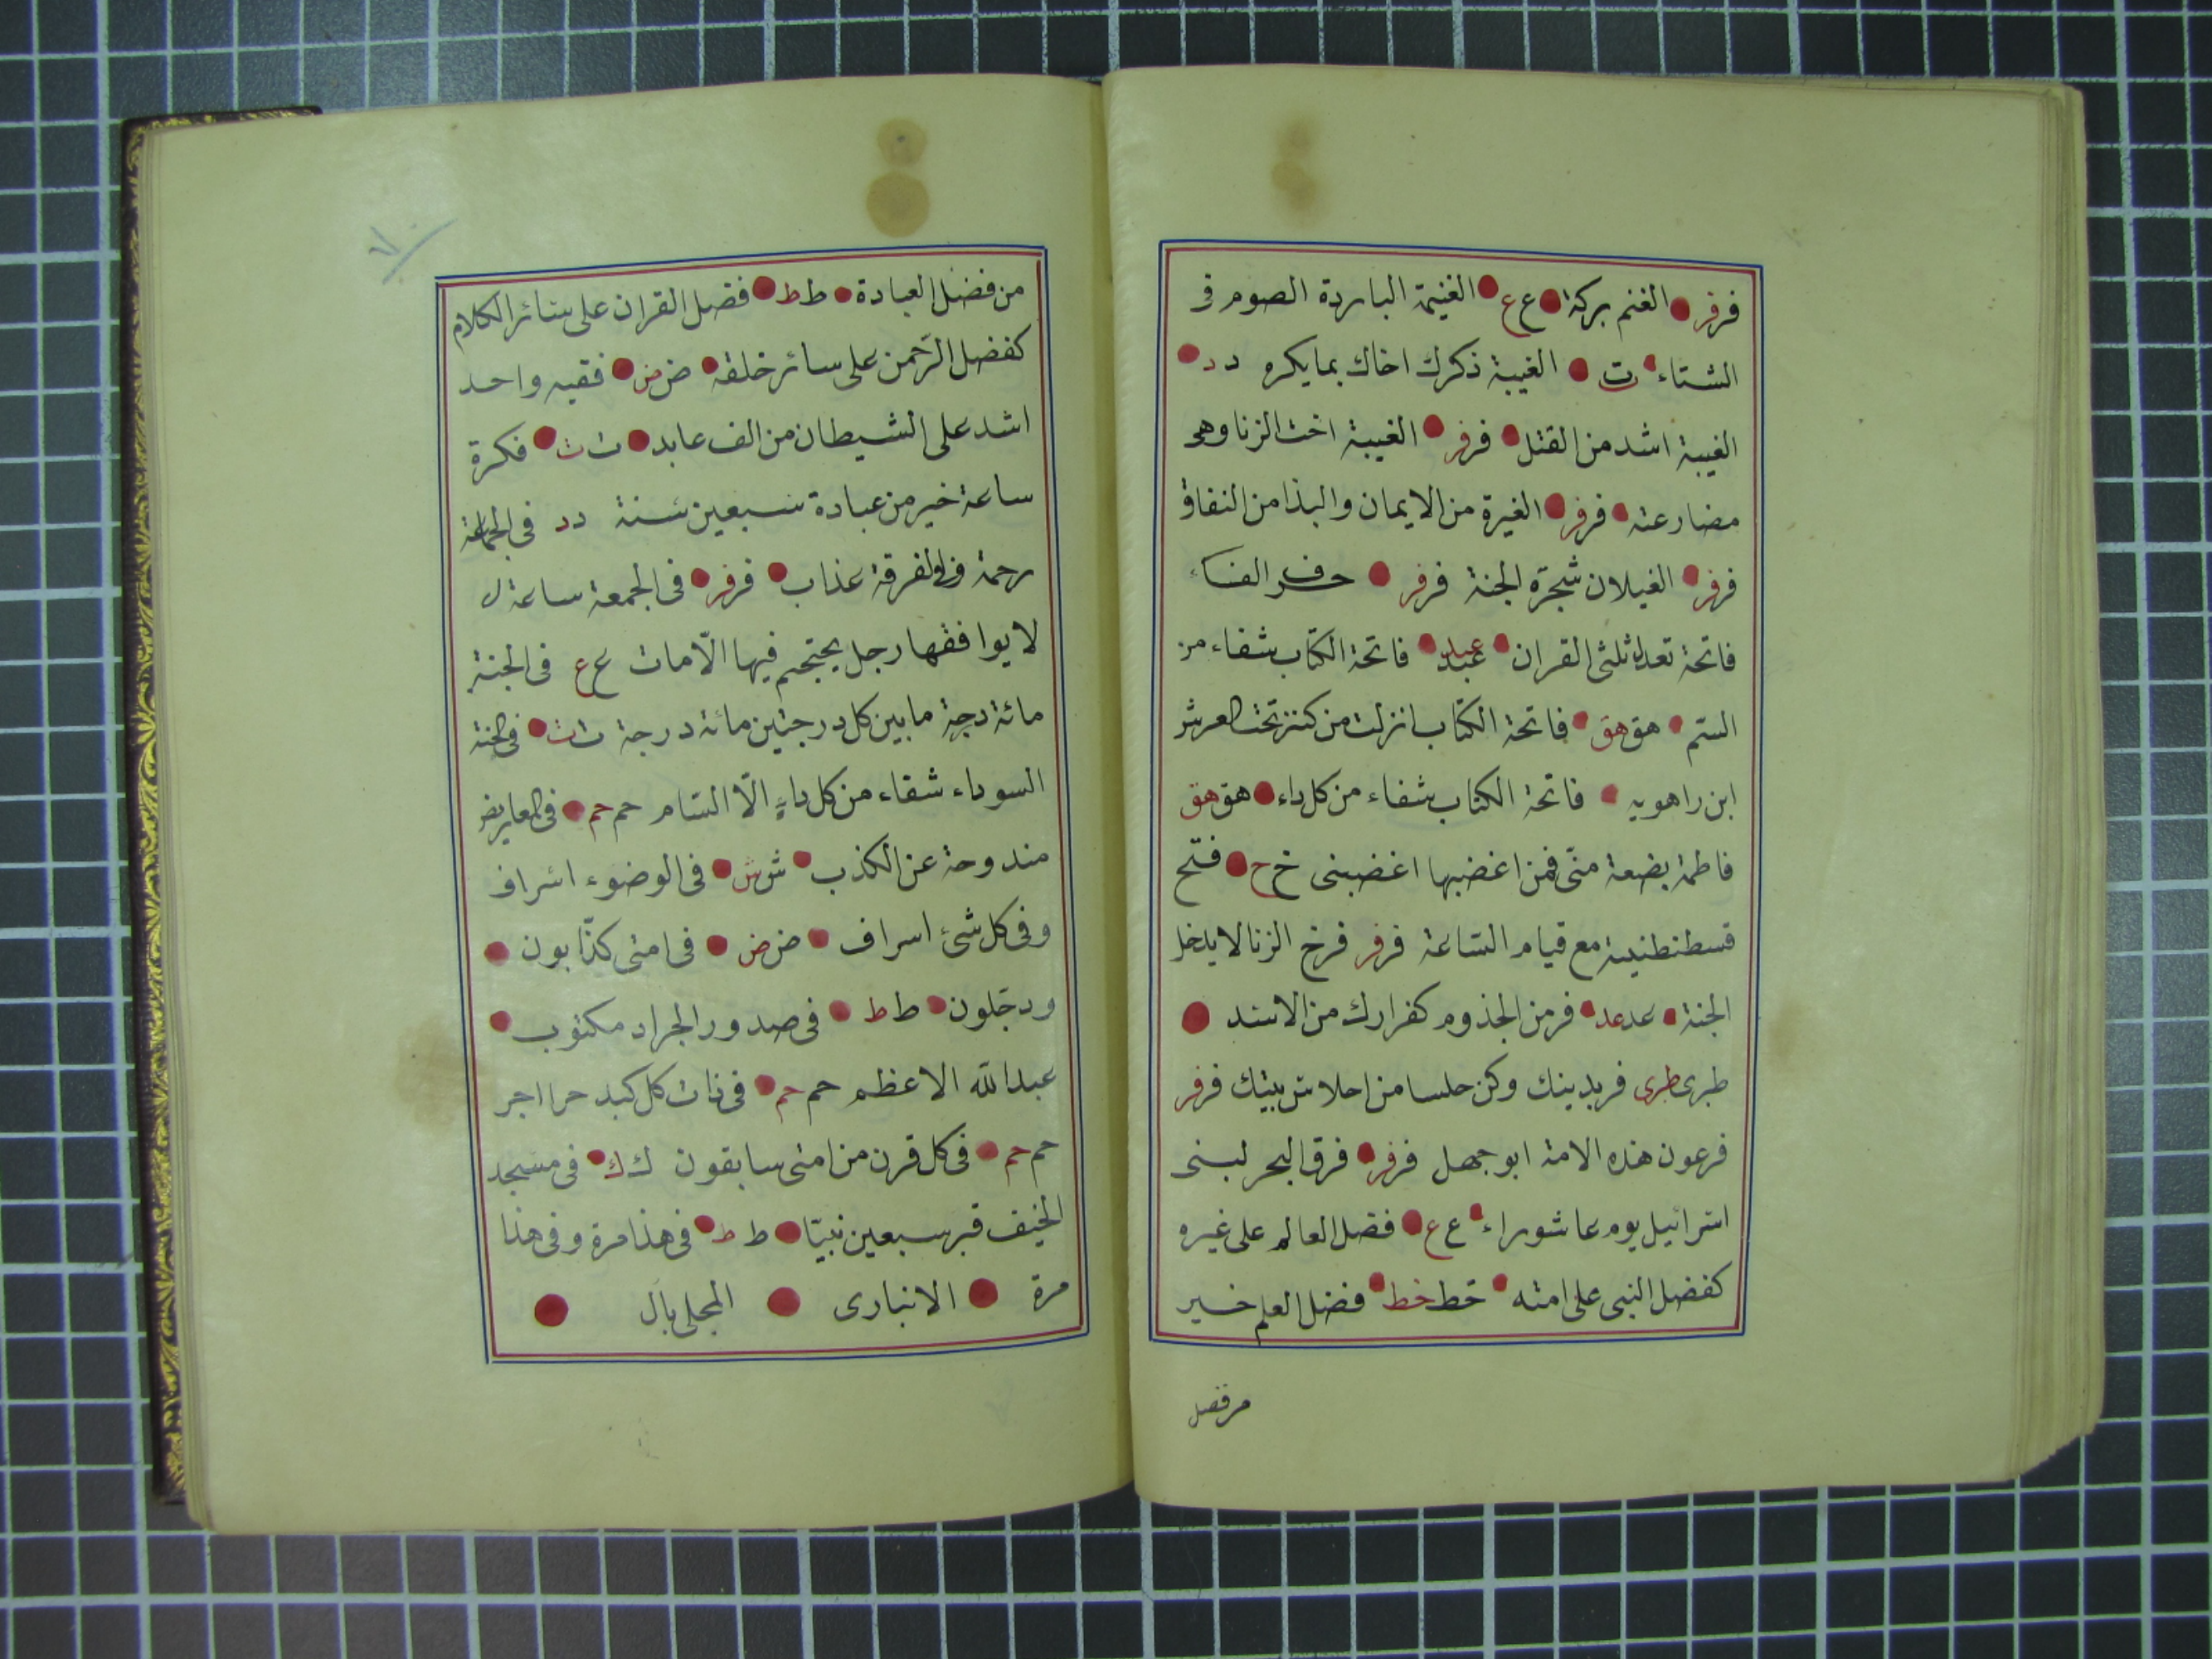 فرفر الغنم بركة ع ع الغنيمة الباردة الصوم فى
الشتاء ت الغيبة ذكرك اخاك بما يكره د د
الغيبة اشد من القتل فرفر الغيبة اخت الزنا وهى
مضارعته فرفر الغيرة من الايمان والبذا من النفاق
فرفر الغيلان شجرة الجنة فرفر حرف الفاء
فاتحة تعدل ثلثى القران عبد فاتحة الكتاب شفاء من
السم هق هق فاتحة الكتاب انزلت من كنز تحت العرش
ابن راهويه فاتحة الكتاب شفاء من كل داء هق هق
فاطمة بضعة منّى فمن اغضبها اغضبنى خ خ فتح
قسطنطنيية مع قيام السّاعة فرفر فرخ الزنا لا يدخل
الجنة عد عد فر من الجذوم كفرارك من الاسد
طبرى طبرى فر بدينك وكن حلسا من احلاس بيتك فرفر
فرعون هذه الامة ابو جهل فرفر فرق البحر لبنى
اسرائيل يوم عاشوراء ع ع فضل العالم على غيره
كفضل النبى على امته خط خط فضل العلم خير
من فضل
من فضل العبادة ط ط فضل القران على سائر الكلام
كفضل الرّحمن على سائر خلقه ض ض فقيه واحد
اشد على الشيطان من الف عابد ت ت فكرة
ساعة خير من عبادة سبعين سنة د د فى الجماعة
رحمة وفى الفرقة عذاب فرفر فى الجمعة ساعة ل
لا يوافقها رجل يحتجم فيها الّا مات ع ع فى الجنة
مائة درجة ما بين كل درجتين مائة درجة ت ت فى الحبة
السوداء شفاء من كل داءٍ الّا السّام حم حم فى المعاريض
مندوحة عن الكذب ش ش فى الوضوء اسراف
وفى كل شئ اسراف ض ض فى امتى كذّابون
ودجّلون ط ط فى صدور الجراد مكتوب
عبد اللّه الاعظم حم حم فى ذات كل كبد حرا اجر
حم حم فى كل قرن من امتى سابقون ك ك فى مسجد
الخيف قبر سبعين نبيّا ط ط فى هذا مرة وفى هذا
مرة الانبارى المحلى بال